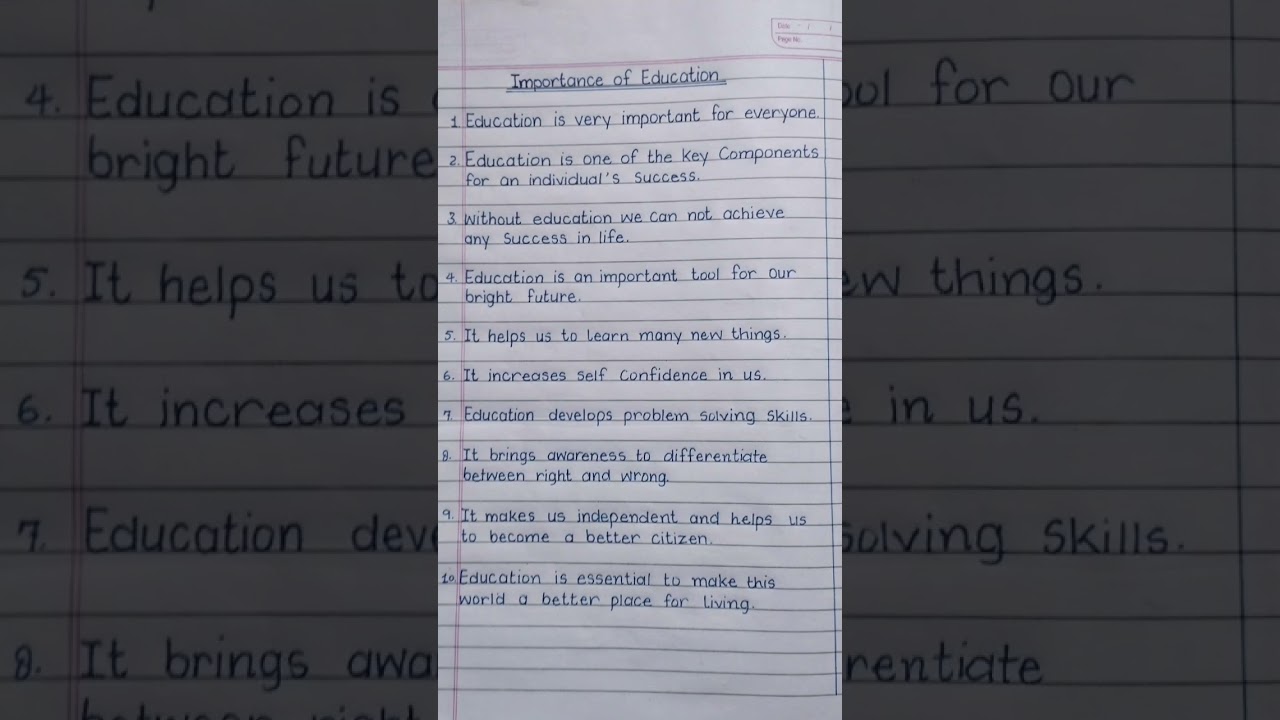 Date / /
Page No.
Importance of Education
1. Education is very important for everyone.
2. Education is one of the key Components
for an individual's Success.
3. Without education we can not achieve
any Success in life.
4. Education is an important tool for our
bright future.
5. It helps us to learn many new things.
6. It increases self Confidence in us.
7. Education develops problem solving Skills.
8. It brings awareness to differentiate
between right and wrong.
9. It makes us independent and helps us
to become a better citizen.
10. Education is essential to make this
world a better place for living.